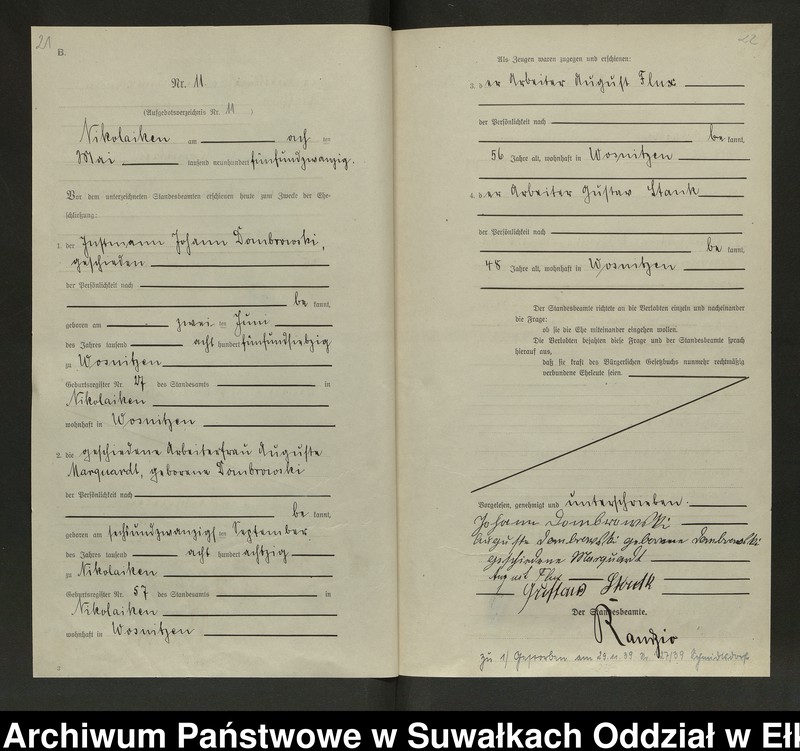 21
B.
Nr. 11
(Aufgebotsverzeichnis Nr. 11 )
Nikolaiken am ach ten
Mai tausend neunhundert fünfundzwanzig.
Vor dem unterzeichneten Standesbeamten erschienen heute zum Zwecke der Ehe-
schließung:
1. der Instmann Johann Dombrowski,
geschieden
der Persönlichkeit nach
be kannt,
geboren am zwei ten Juni
des Jahres tausend acht hundert fünfundsiebzig
zu Wosnitzen
Geburtsregister Nr. 27 des Standesamts in
Nikolaiken
wohnhaft in Wosnitzen
2. die geschiedene Arbeiterfrau Auguste
Marquardt, geborene Dombrowski
der Persönlichkeit nach
be kannt,
geboren am sechsundzwanzigst en September
des Jahres tausend acht hundert achtzig
zu Nikolaiken
Geburtsregister Nr. 57 des Standesamts in
Nikolaiken
wohnhaft in Wosnitzen
22
Als Zeugen waren zugegen und erschienen:
3. der Arbeiter August Flux
der Persönlichkeit nach
be kannt,
56 Jahre alt, wohnhaft in Wosnitzen
4. der Arbeiter Gustav Stank
der Persönlichkeit nach
be kannt,
48 Jahre alt, wohnhaft in Wosnitzen
Der Standesbeamte richtete an die Verlobten einzeln und nacheinander
die Frage:
ob sie die Ehe miteinander eingehen wollen.
Die Verlobten bejahten diese Frage und der Standesbeamte sprach
hierauf aus,
daß sie kraft des Bürgerlichen Gesetzbuchs nunmehr rechtmäßig
verbundene Eheleute seien.
Vorgelesen, genehmigt und unterschrieben.
Johann Dombrowski
Auguste Dombrowski geborene Dombrowski
geschiedene Marquardt
August Flux
Gustav
Der Standesbeamte.
Randzio
zu 1) Gestorben am 29.11.39 Nr. 27/39 Schmidtsdorf
Archiwum Państwowe w Suwałkach Oddział w Eł